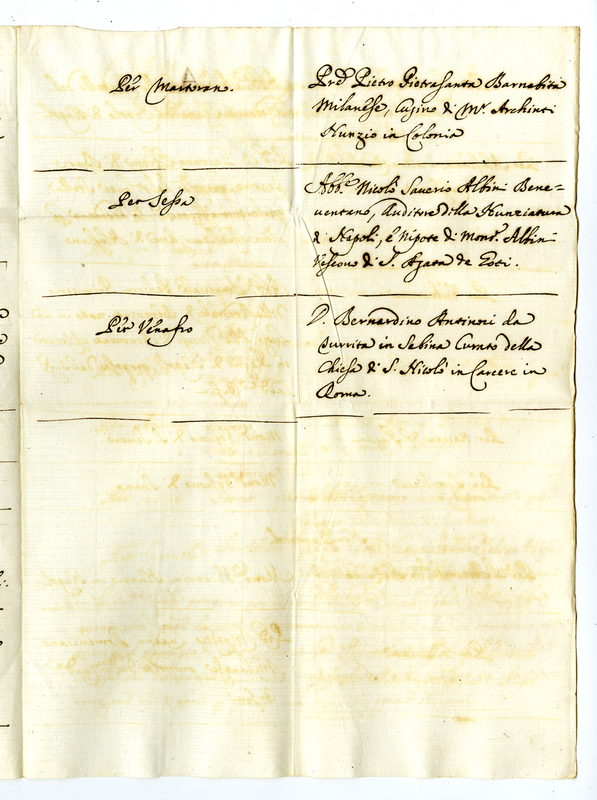 Per Martoran.
Prẽ Pietro Pietrasanta Barnabita
Milanese, Cugino di Mr. Archinti
Nunzio in Colonia
Per Sessa
Abbe. Nicolò Saverio Albini Bene=
ventano, Auditore della Nunziatura
di Napoli, e Nipote di Monsr. Albini
Vescovo di S. Agata de Goti.
Per Venafro
D. Bernardino Antinori da
in Sabina Curato della
Chiesa di S. Nicolò in Carcere in
Roma.